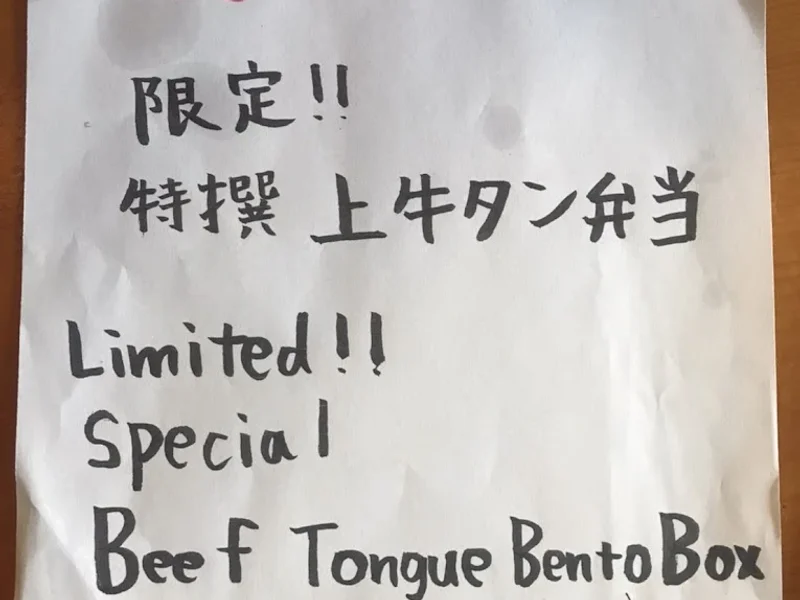 限定!!
特撰 上牛タン弁当
Limited!!
Special
Beef Tongue Bento Box